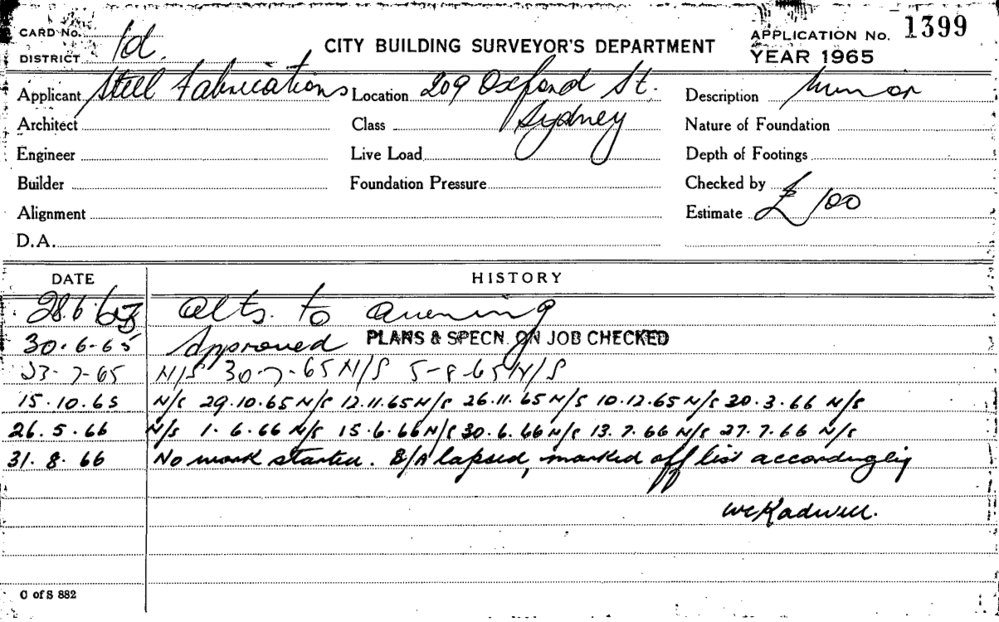 CARD No.
1399
DISTRICT 1d.
CITY BUILDING SURVEYOR'S DEPARTMENT
APPLICATION No.
YEAR 1965
Applicant Steel Fabrications Location 209 Oxford St. Description Minor
Architect Class Sydney Nature of Foundation
Engineer Live Load Depth of Footings
Builder Foundation Pressure Checked by
Alignment Estimate £100
D.A.
DATE HISTORY
28.6.65 Alts. to awning
30.6-65 Approved PLANS & SPECN. ON JOB CHECKED
23-7-65 N/S 30-7-65 N/S 5-8-65 N/S
15.10.65 N/S 29.10.65 N/S 12.11.65 N/S 26.11.65 N/S 10.12.65 N/S 30.3.66 N/S
26.5.66 N/S 1.6.66 N/S 15.6.66 N/S 30.6.66 N/S 13.7.66 N/S 27.7.66 N/S
31.8.66 No work started. B/A lapsed, marked off list accordingly
WCKadwell.
C of S 882